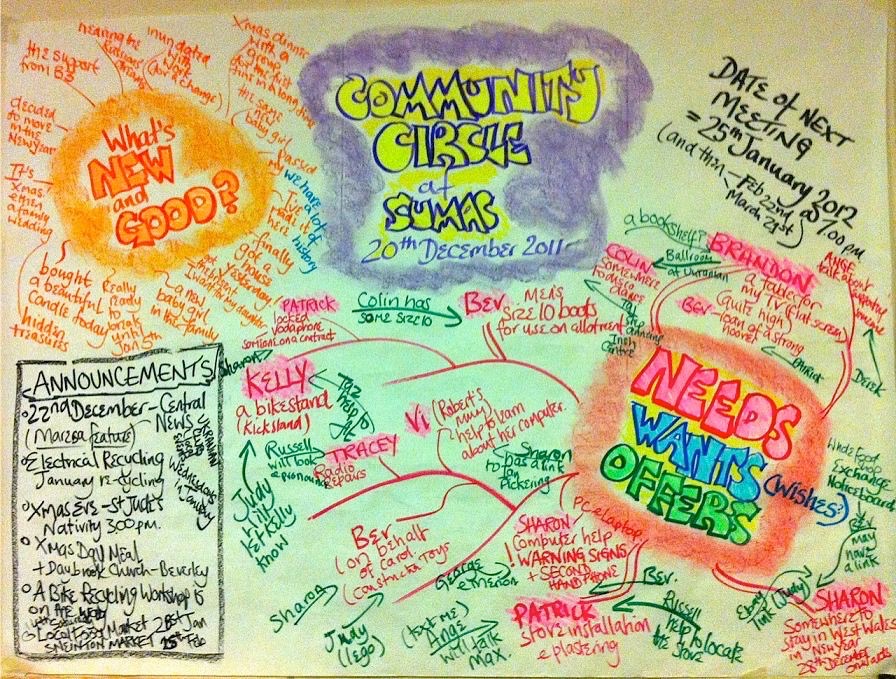 COMMUNITY
CIRCLE
at
SUMAC
20th December 2011
DATE of NEXT
MEETING
= 25th January 2012
(and then - Feb 22nd @
March 21st)
7.00 pm
What's
NEW
and
GOOD?
the support
from B3
hearing the
inundated
with
work
(for a change)
Xmas dinner
with a
group
for the first
time in a long time
the same
new
baby girl
passed
we have a lot
of
history
decided
to move
in the
New Year
It's
Xmas
& then
a family
wedding
finally
got a
house
yesterday!
a new
baby girl
in the family
Really
ready
to
break
until
Jan 5th
bought
a beautiful
candle today
hidden
treasures
ANNOUNCEMENTS
22nd December - Central
NEWS
(Marzea feature)
Electrical Recycling
January re-cycling
Wednesdays
in January
Xmas Eve - St Jude's
Nativity 3.00pm.
Xmas Day Meal
+ Daybrook Church - Beverley
A Bike Recycling Workshop is
on the
Local Food Market 28th Jan
SNEINTON MARKET 25th Feb
NEEDS
WANTS
(wishes)
OFFERS
PATRICK
locked
vodaphone
someone on a contract
Sharon
Colin has
some size 10
Bev.
MENS
Size 10 boots
for use on allotment
KELLY
a bikestand
(kickstand)
Judy
will
let Kelly
know
Russell
will look
TRACEY
Radio
Repairs
Vi
(Robert's
mum)
help to learn
about her computer.
Sharon
has a link
to Jan
Pickering
Bev
(on behalf
of Carol.
Constructa Toys
Sharon
Judy
(lego)
George
e Merion
PC e laptop
SHARON
Computer help
! WARNING SIGNS
+ SECOND
HAND PHONE
PATRICK
stove installation
e plastering
(text me)
Ange
will talk
Max.
Bev.
Russell
help to locate
the stove
SHARON
Somewhere to
stay in West Wales
in New Year
28th December
Ebony
link (Judy)
Bev
may
have
a link
Exchange
Noticeboard
a bookshelf?
BRANDON
a table for
my TV (flat screen)
Quite high
Bev - loan of a strong
hoover
Patrick
COLIN
somewhere
to dance
Ballroom
at Ukranian
Tap
Step dancing
Irish
Centre
ANGE
talk
about
supporting
someone
Derek